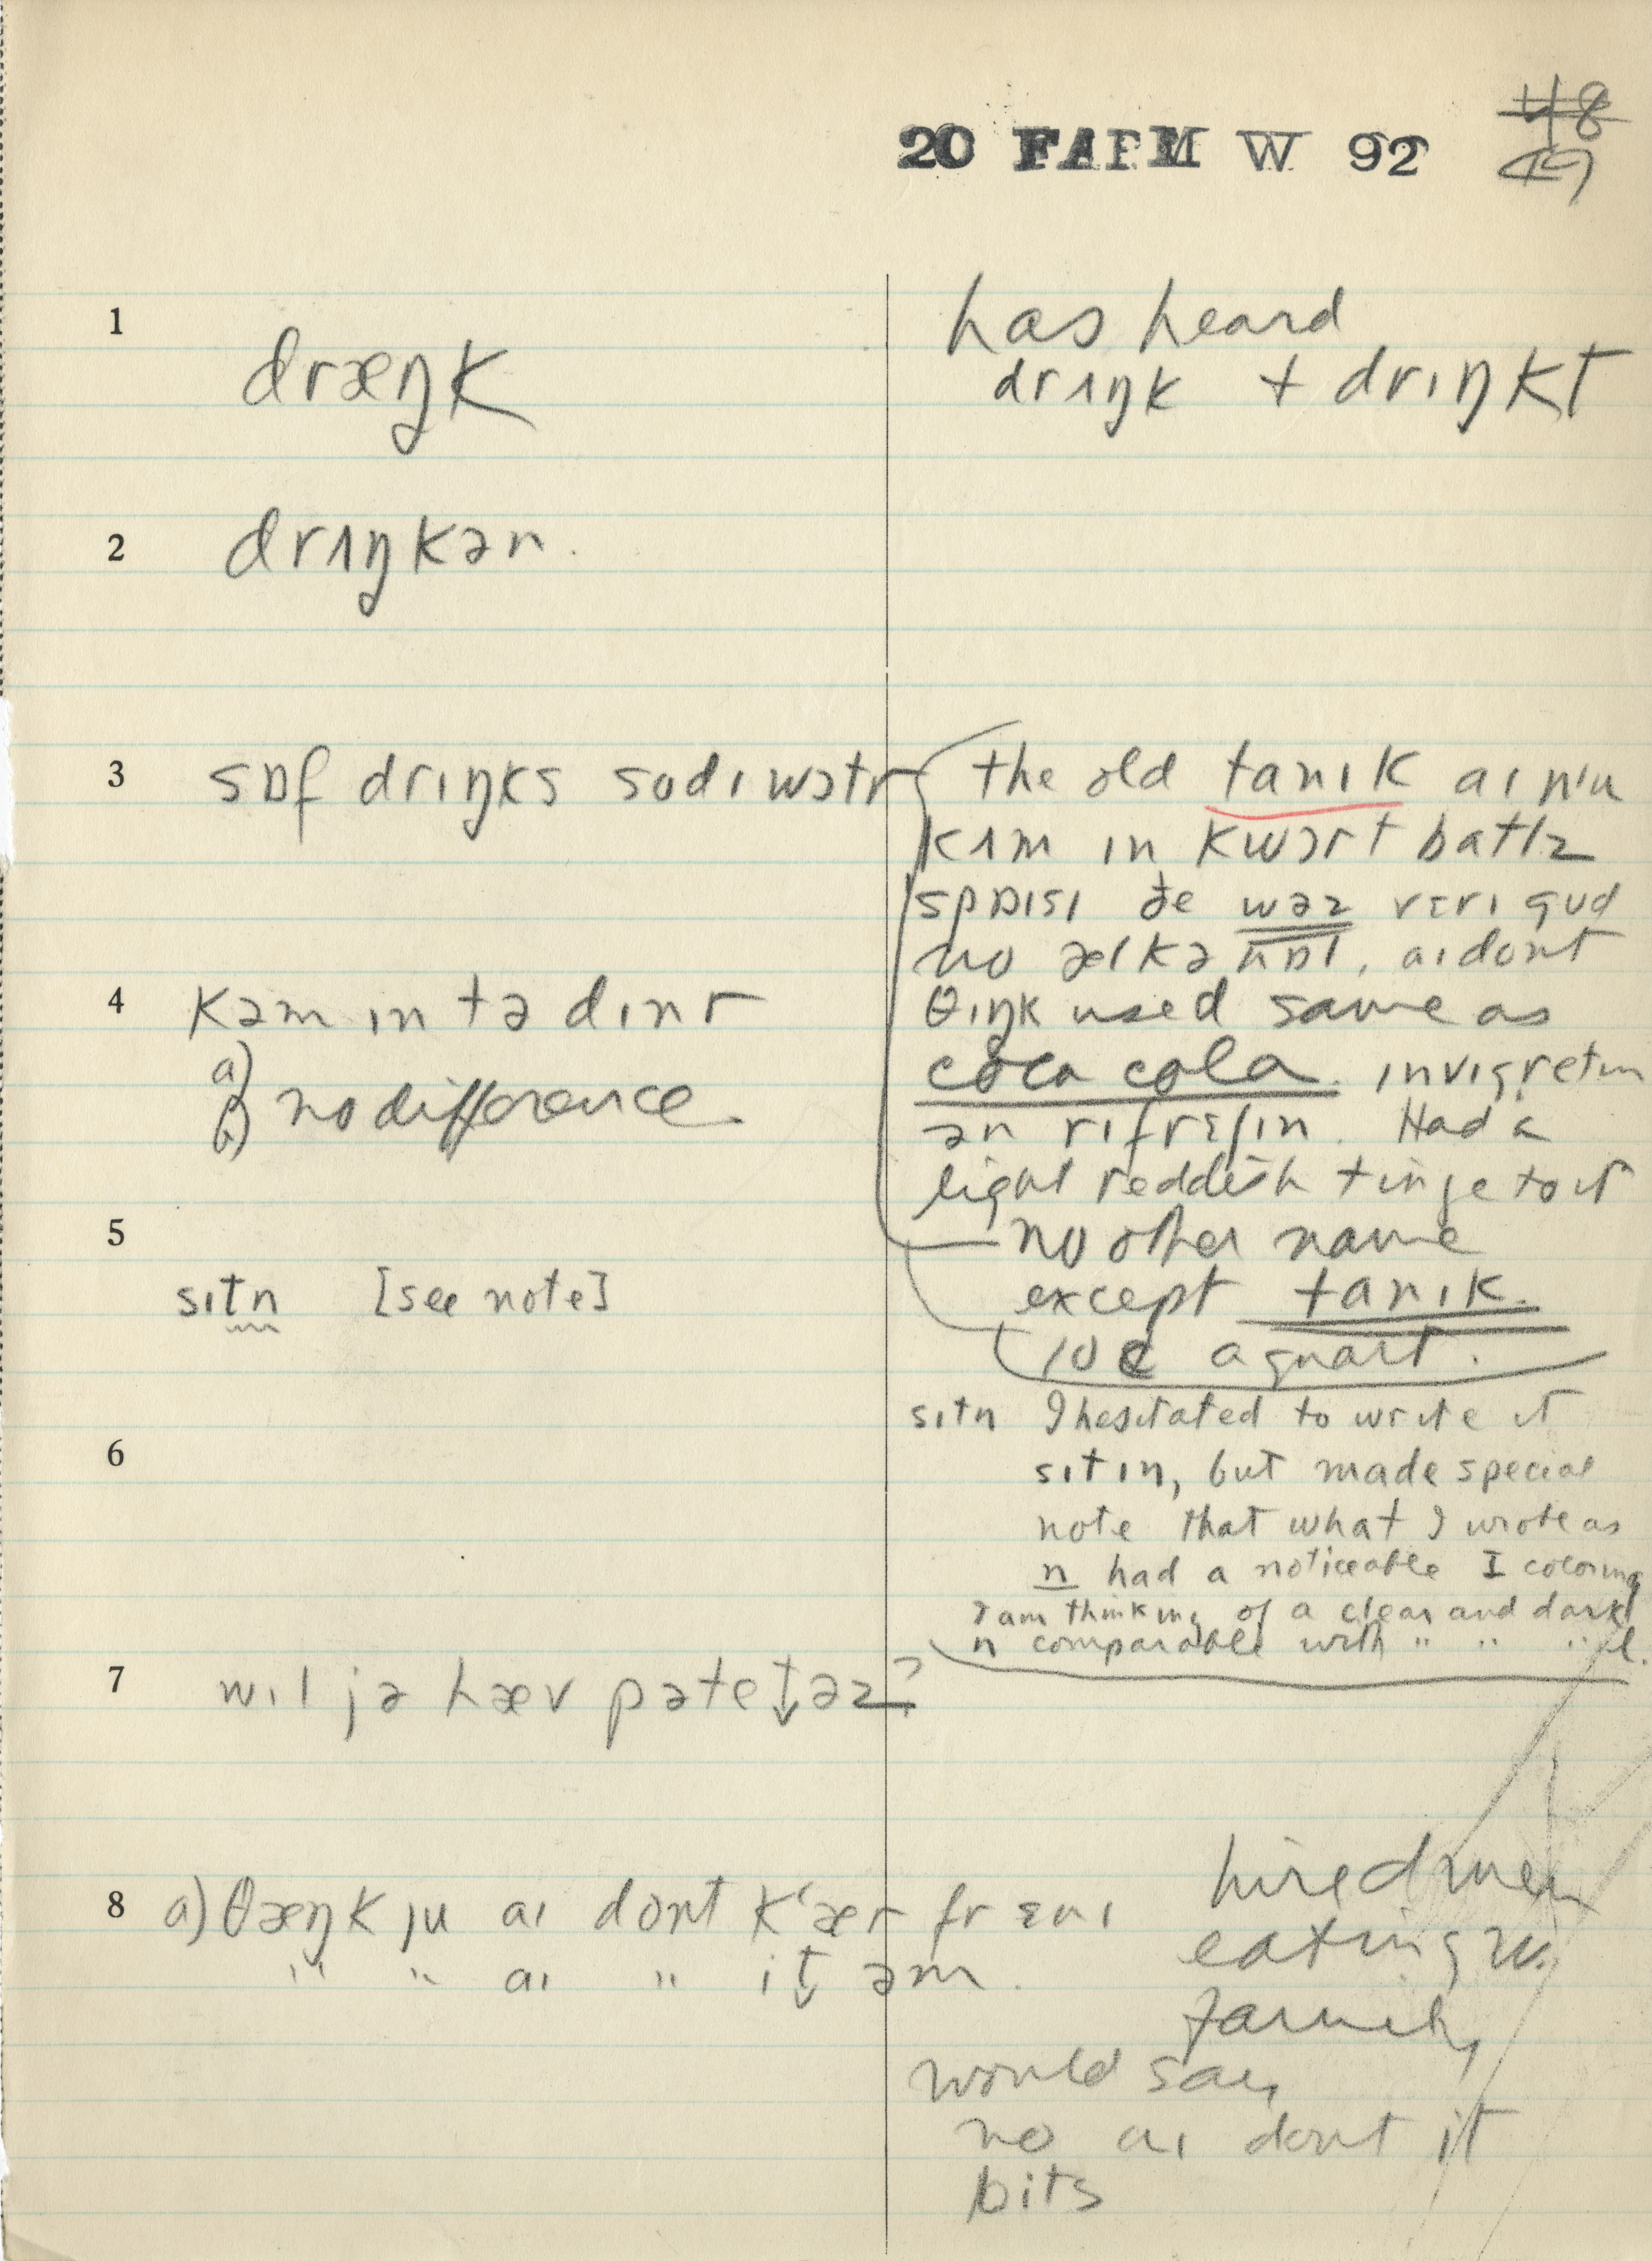 20 FARM W 92 48
49
1 dræŋk
has heard
drɪŋk + drɪŋkt
2 drɪŋkən.
3 sɒf drɪŋks sodɪ wɔtr
the old tanɪk aɪ nu
kʌm ɪn kwɔrt batlz
spaɪsɪ ðe wəz vɛrɪ gud
no ælkəhɒl, aɪ dont
θɪŋk used same as
coca cola. ɪnvɪgretɪn
ən rɪfrɛʃɪn. Had a
light reddish tinge to it
no other name
except tanɪk.
10¢ a quart.
4 kəm ɪn tə dɪnr
a)
b) no difference
5
sɪtn [see note]
sɪtn I hesitated to write it
sɪtɪn, but made special
note that what I wrote as
n had a noticeable I coloring
I am thinking of a clear and dark
n comparable with " " " l.
6
7 wɪl jə hæv pətetəz?
8 a) θæŋk ju aɪ dont kʻær fr ɛnɪ
" " aɪ " it əm.
hired men
eating w.
family
would say
no aɪ dont it
bits